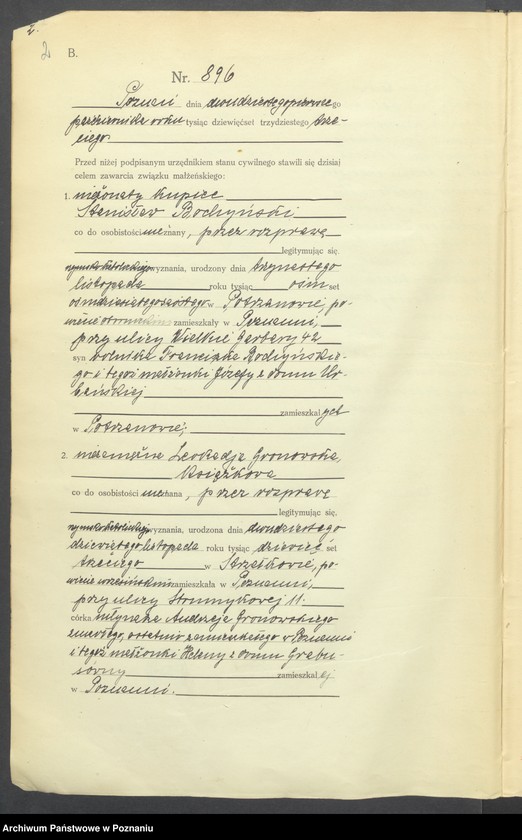 2.
2 B.
Nr. 896
Poznań dnia dwudziestegopierwszego
października roku tysiąc dziewięćset trzydziestego trze-
ciego.
Przed niżej podpisanym urzędnikiem stanu cywilnego stawili się dzisiaj
celem zawarcia związku małżeńskiego:
1. nieżonaty kupiec
Stanisław
co do osobistości nieznany, przez rozprawę
legitymując się.
rzymskokatolickiego wyznania, urodzony dnia trzynastego
listopada roku tysiąc osimset
w Potrzanowie, po-
wiecie zamieszkały w Poznaniu,
przy ulicy Wielkie Garbary 42
syn rolnika Franciszka
go i tegoż małżonki Józefy z domu Ur-
bańskiej
zamieszkałych
w Potrzanowie;
2. niezamężna Leokadja Gronowska,
książkowa
co do osobistości nieznana, przez rozprawę
legitymując się,
rzymskokatolickiego wyznania, urodzona dnia dwudziestego
dziewiątego listopada roku tysiąc dziewięćset
trzeciego w Strzałkowie, po-
wiecie wrzesińskim zamieszkała w Poznaniu,
przy ulicy Strumykowej 11
córka młynarza Andrzeja Gronowskiego
zmarłego, ostatnio zamieszkałego w Poznaniu
i tegoż małżonki Heleny z domu Grabu-
sówny zamieszkałej
w Poznaniu.
Archiwum Państwowe w Poznaniu